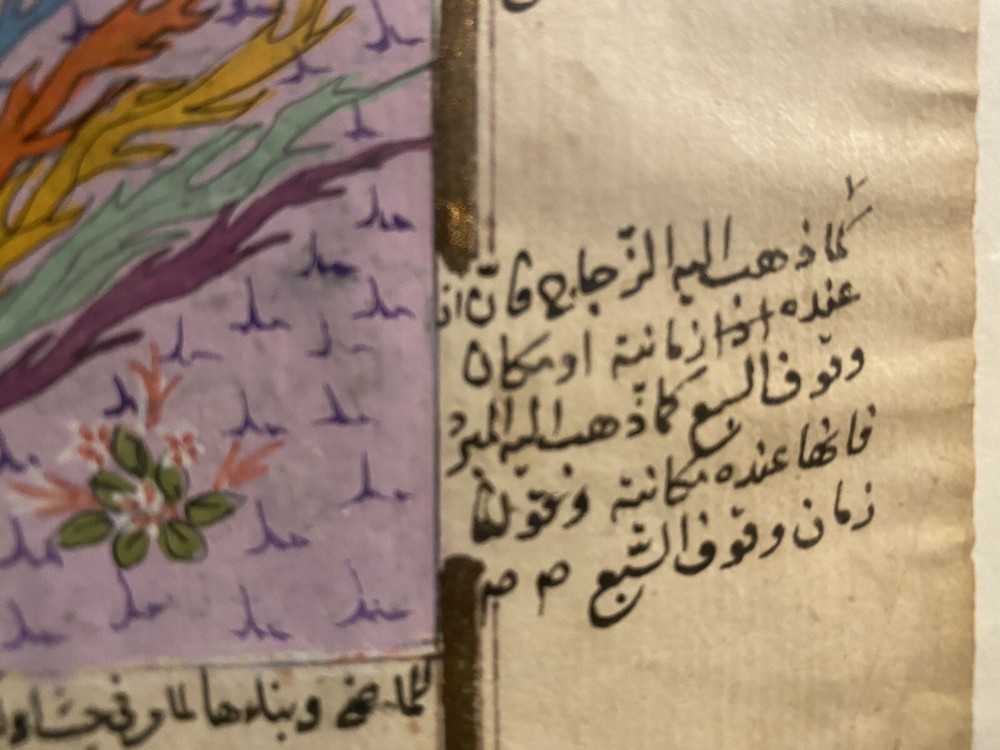 كما ذهب اليه الزجاج فانّ اذ
عنده اذا زمانية او مكان
وقوف السبع كما ذهب اليه المبرد
فانها عنده مكانية ونحو
زمان وقوف السّبع صح صح
وبناءها